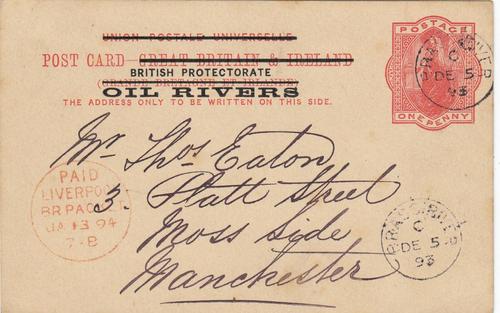 UNION POSTALE UNIVERSELLE
POST CARD - GREAT BRITAIN & IRELAND
BRITISH PROTECTORATE
(GRANDE BRETAGNE ET IRLANDE)
OIL RIVERS
THE ADDRESS ONLY TO BE WRITTEN ON THIS SIDE.
POSTAGE
ONE PENNY
BRASS RIVER
C
DE 5
93
Mr. Thos Eaton
3. Platt Street
Moss Side
Manchester
PAID
LIVERPOOL
BR PACKET
JA 13 94
7-B
BRASS RIVER
C
DE 5
93